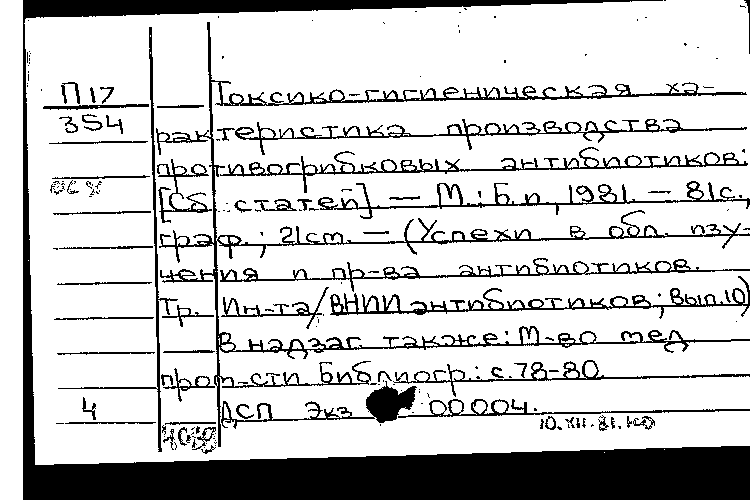 П17 Токсико-гигиеническая ха-
354 рактеристика производства
противогрибковых антибиотиков:
[Сб. статей]. — М.: Б.и., 1981. — 81с.,
граф.; 21см. — (Успехи в обл. изу-
чения и пр-ва антибиотиков.
Тр. Ин-та/ВНИИ антибиотиков; Вып.10)
В надзаг также: М-во мед
пром-сти Библиогр.: с.78-80.
4 ДСП Экз 00004.
10.XII.81.